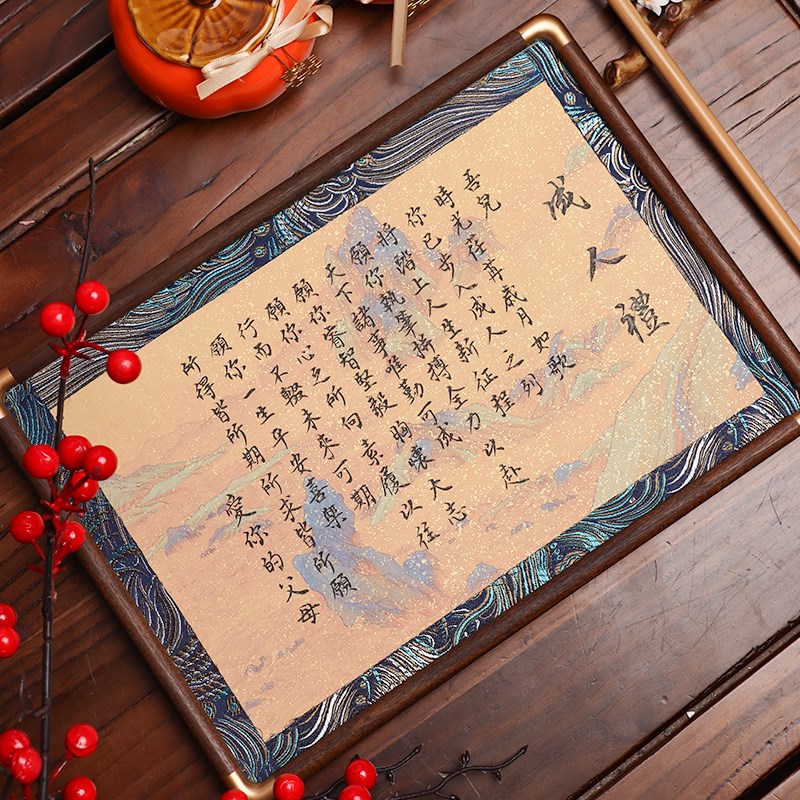 成人禮
吾兒
時光荏苒歲月如歌
你已步入成人之列
將踏上人生新征程
願你執筆拚搏全力以赴
天下諸事唯勤可成
願你睿智堅毅胸懷大志
願你心之所向素履以往
行而不輟未來可期
願你一生平安喜樂
所得皆所期所求皆所願
愛你的父母